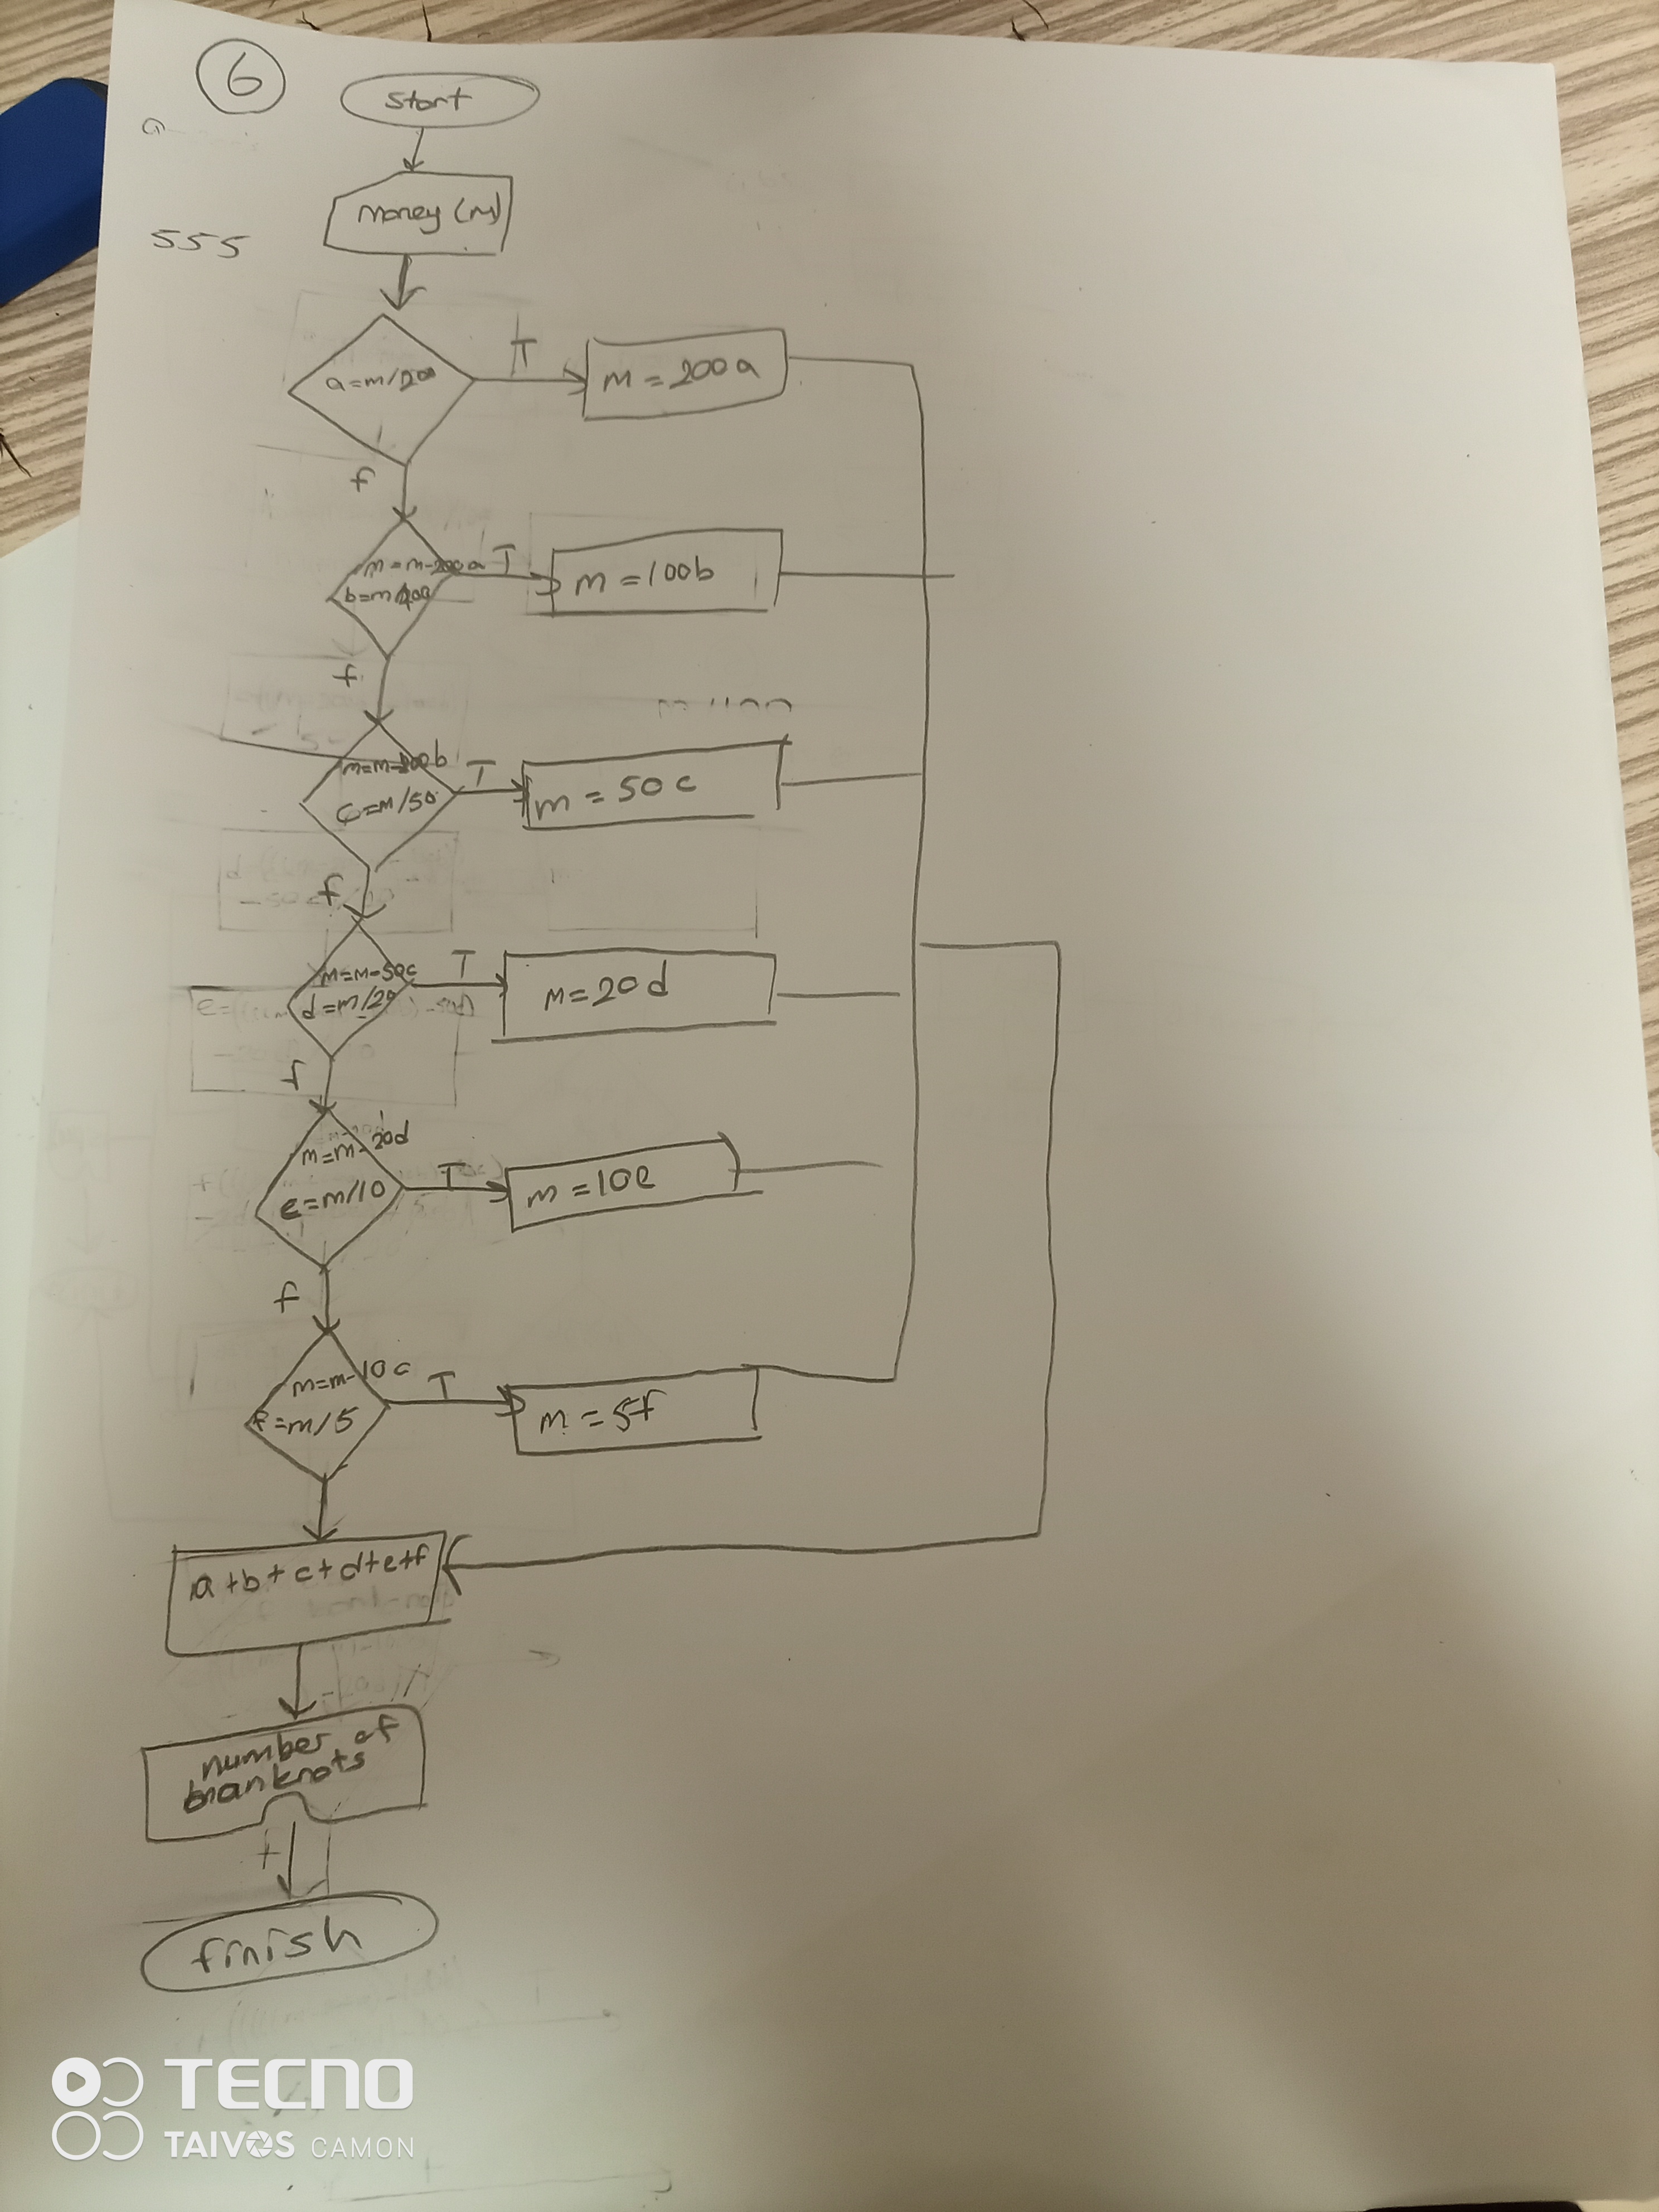 6
start
money (m)
555
a=m/200
T
m = 200a
f
m=m-200a
b=m/100
T
m = 100b
f
m=m-100b
c=m/50
T
m = 50c
f
m=m-50c
d=m/20
T
m=20d
f
m=m-20d
e=m/10
T
m=10e
f
m=m-10e
f=m/5
T
m = 5f
a+b+c+d+e+f
number of
banknots
finish
TECNO
TAIVOS CAMON